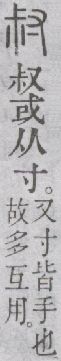 叔或从寸。
又寸皆手也
故多互用。